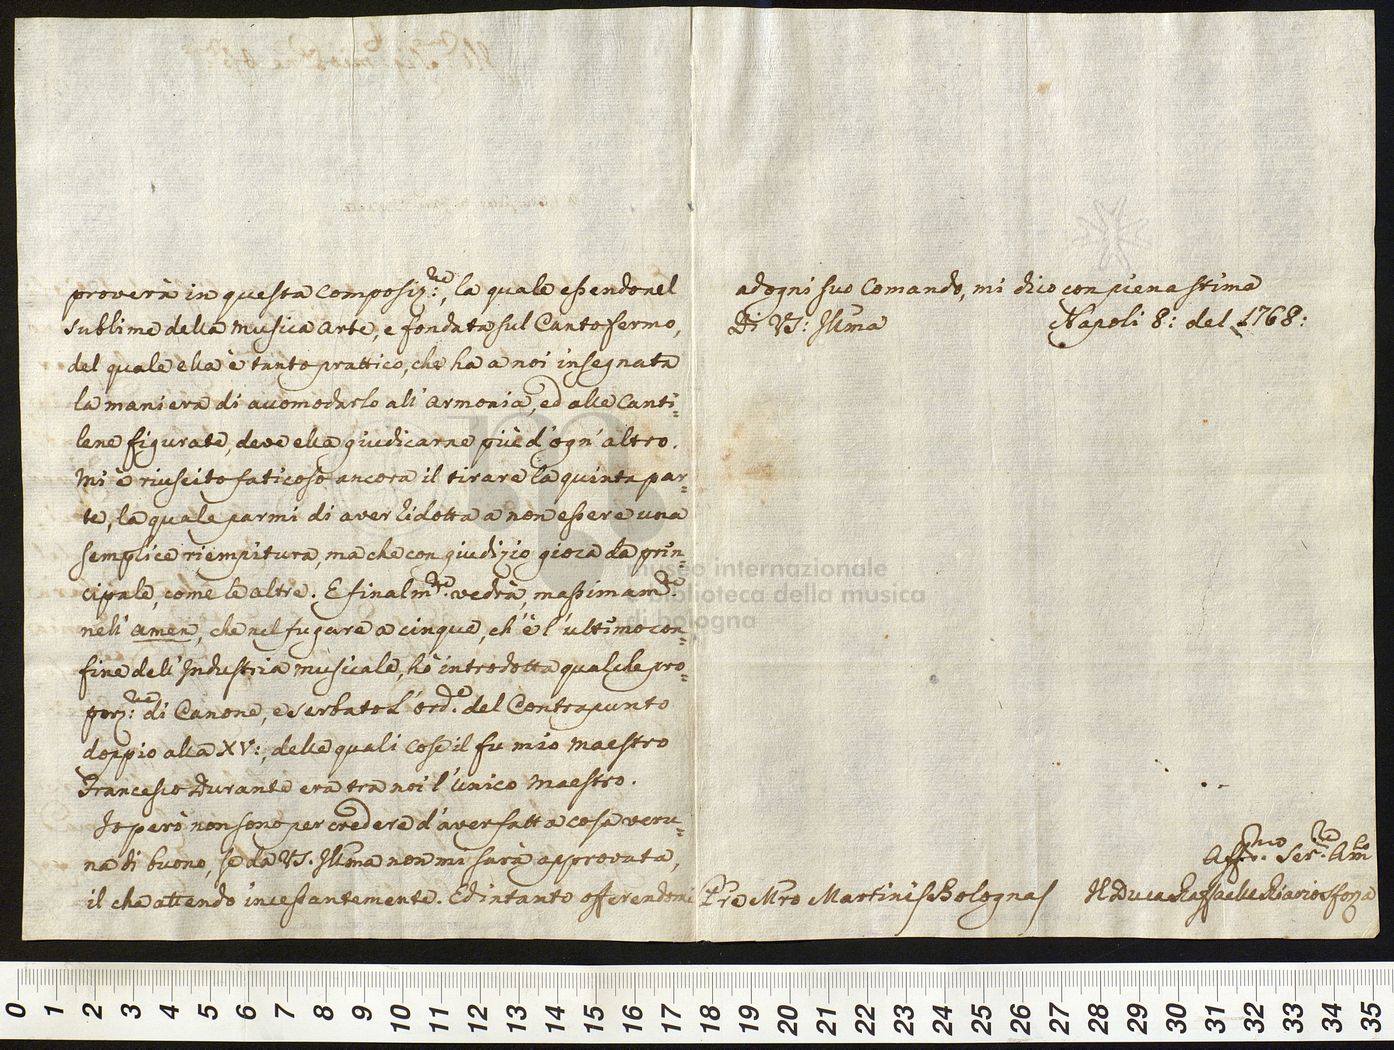 proverà in questa Composiz:ne, la quale essendo nel
sublime della Musica Arte, e fondata sul Canto fermo,
del quale ella è tanto prattico, che ha a noi insegnata
la maniera di accomodarlo all'Armonia, ed alle Canti=
lene figurate, deve ella giudicarne più d'ogn'altro.
Mi è riuscito faticoso ancora il tirare la quinta par=
te, la quale parmi di aver ridotta a non essere una
semplice riempitura, ma che con giudizio gioca da prin=
cipale, come le altre. E finalm:te vedrà, massimam:te
nell'Amen, che nel fugare a cinque, ch'è l'ultimo con=
fine dell'Industria Musicale, hò introdotta qualche pro=
porz:ne di Canone, e serbato l'ord:e del Contrapunto
doppio alla XV:, delle quali cose il fu mio Maestro
Francesco Durante era tra noi l'unico Maestro.
Io però non sono per credere d'aver fatta cosa veru=
na di buono, se da VS. Illma non mi sarà approvata,
il che attendo incessantemente. Ed intanto offerendomi
ad ogni suo Comando, mi dico con piena stima
Di VS: Illma
Napoli 8: del 1768:
Affmo: Ser:re
Pre Mro Martini Bologna
Il Duca Raffaelle Riario Sforza
museo internazionale
e biblioteca della musica
di bologna
0 1 2 3 4 5 6 7 8 9 10 11 12 13 14 15 16 17 18 19 20 21 22 23 24 25 26 27 28 29 30 31 32 33 34 35